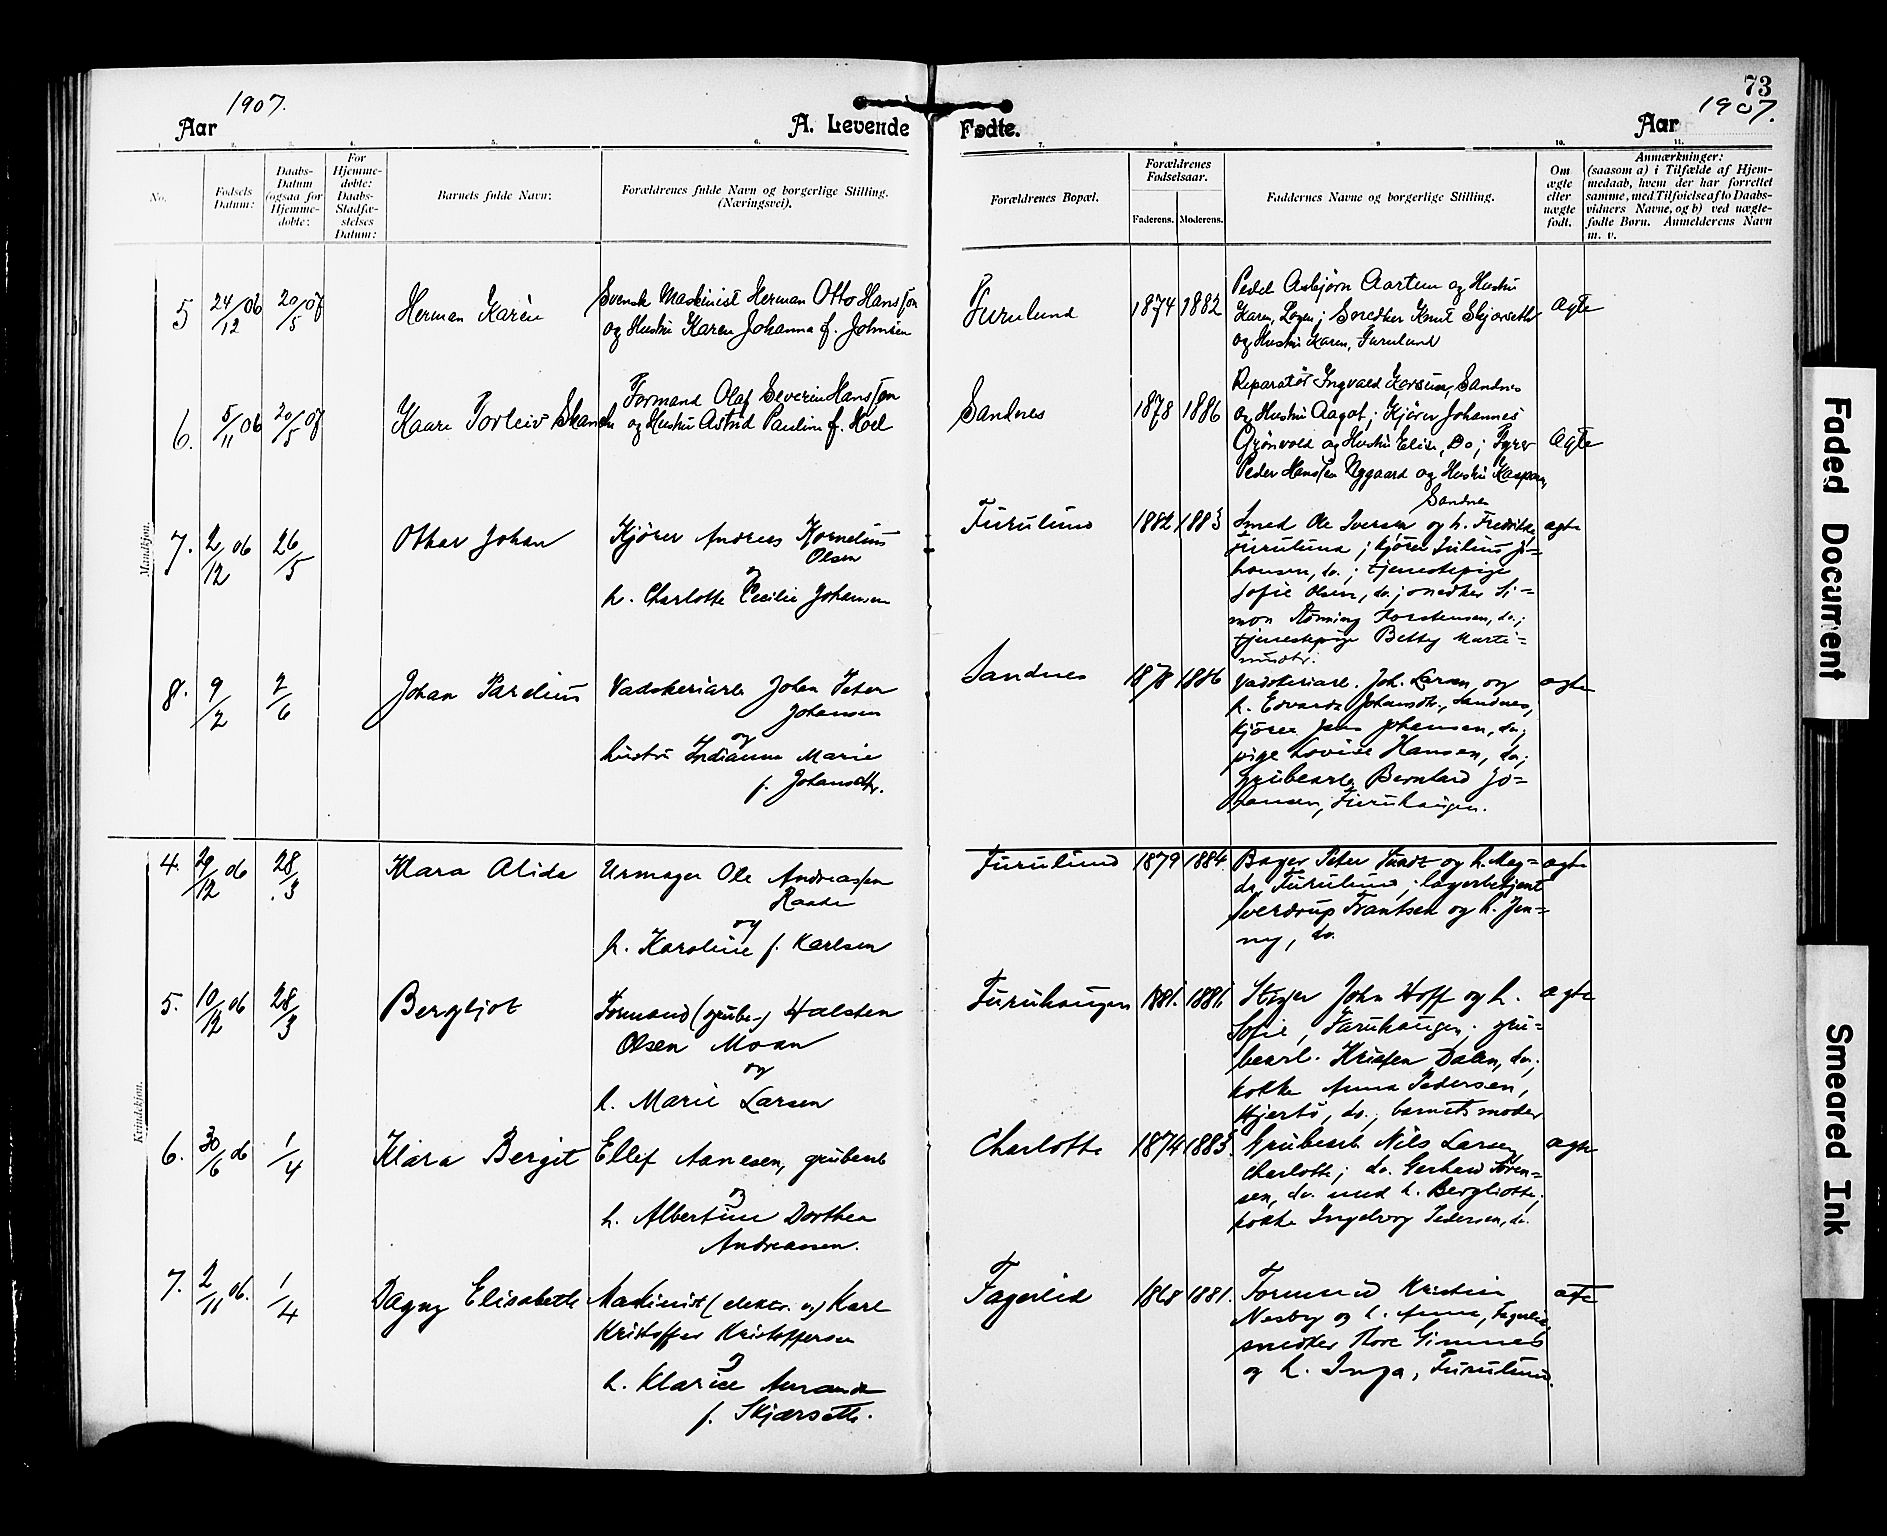 73
1907.
1907.
Aar
A. Levende
Fødte.
Aar
1.
2.
3.
4.
5.
6.
7.
8
9
10.
11.
No.
Fødsels
Datum:
Daabs-
Datum
(ogsaa for
Hjemme-
døbte:
For
Hjemme-
døbte:
Daabs-
Stadfæ-
stelses
Datum:
Barnets fulde Navn:
Forældrenes fulde Navn og borgerlige Stilling.
(Næringsvei).
Forældrenes Bopæl.
Forældrenes
Fødselsaar.
Faderens.
Moderens.
Faddernes Navne og borgerlige Stilling.
Om
ægte
eller
uægte
født.
Anmærkninger:
(saasom a) i Tilfælde af Hjem-
medaab, hvem der har forrettet
samme, med Tilføielse af to Daabs-
vidners Navne, og b) ved uægte-
fødte Børn. Anmelderens Navn
m. v.
Mandkjøn.
5
24/12 06
20/5 07
Herman Karèn
Svensk Maskinist Herman Otto Hansson
og Hustru Karen Johanna f. Johnsen
Furulund
1874
1882
Pedel Asbjørn Aartun og Hustru
Karen, ; Snedker Knut Skjærseth
og Hustru Karen, Furulund
ægte
6.
5/11 06
20/5 07
Kaare Torleiv
Formand Olaf Severin Hansson
og Hustru Astrid Pauline f. Moel
Sandnes
1878
1886
Reparatør Ingvald, Sandnes
og Hustru Aagot; Kjører Johannes
Grønvold og Hustru Elise, Do; Fyrer
Peder Hanssen Nygaard og Hustru
Sandnes
ægte
7.
2/12 06
26/5
Ottar Johan
Kjører Andreas Kornelius
Olsen
og
h. Charlotte Cecilie Johansen
Furulund
1882
1883
Smed Ole Iversen og h. Fredrikke,
Furulund; kjører Julius Jo=
hansen, do.; tjenestepige
Sofie Olsen, do; snedker Si=
mon Rønning Torstensen, do.;
tjenestepige Betty Marti=
nusdtr.
ægte
8.
9/2
2/6
Johan Pardius
Vadskeriarb. Johan Peter
Johansen
og
hustru Indianna Marie
f. Johansdtr.
Sandnes
1878
1886
Vadskeriarb. Joh. Larsen og
h. Edvarda Johansdtr., Sandnes,
kjører Jens Johansen, do.;
pige Lovise Hansen, do.;
Grubearb. Bernhard Jo=
hansen, Furuhaugen.
ægte
Kvindekjøn.
4.
29/12 06
28/3
Klara Alida
Urmager Ole Andreassen
Raade
og
h. Karoline f. Karlsen
Furulund
1879
1884
Bager Peter Sundt og h. Mag=
da, Furulund; lagerbetjent
Sverdrup Frantsen og h. Jen=
ny, do.
ægte
5.
10/12 06
28/3
Bergljot
Formand (grube-) Halsten
Olsen Moan
og
h. Marie Larsen
Furuhaugen
1881.
1881.
Stiger John Hoff og h.
Sofie, Furuhaugen; gru=
bearb. Kristen Dalen, do.;
kokke Anna Pedersen,
Hjertø, do.; barnets moder
ægte
6.
30/6 06
1/4
Klara Bergit
Ellef Aanesen, grubearb
og
h. Albertine Dorthea
Andreassen.
Charlotta
1874
1883.
Grubearb. Nils Larsen,
Charlotta; do. Gerhard Søren=
sen, do. med h. Bergliotte;
kokke Ingeborg Pedersen, do.
ægte
7.
2/11 06.
1/4
Dagny Elisabeth
Maskinist (elektr. v.) Karl
Kristoffer Kristoffersen
og
h. Klarise Amanda
f. Skjærseth.
Fagerlid
1868
1881.
Formand Kristian
Nesby og h. Anna, Fagerlid,
snedker Thore Gimnes
og h. Inga, Furulund.
ægte
Faded Document
Smeared Ink